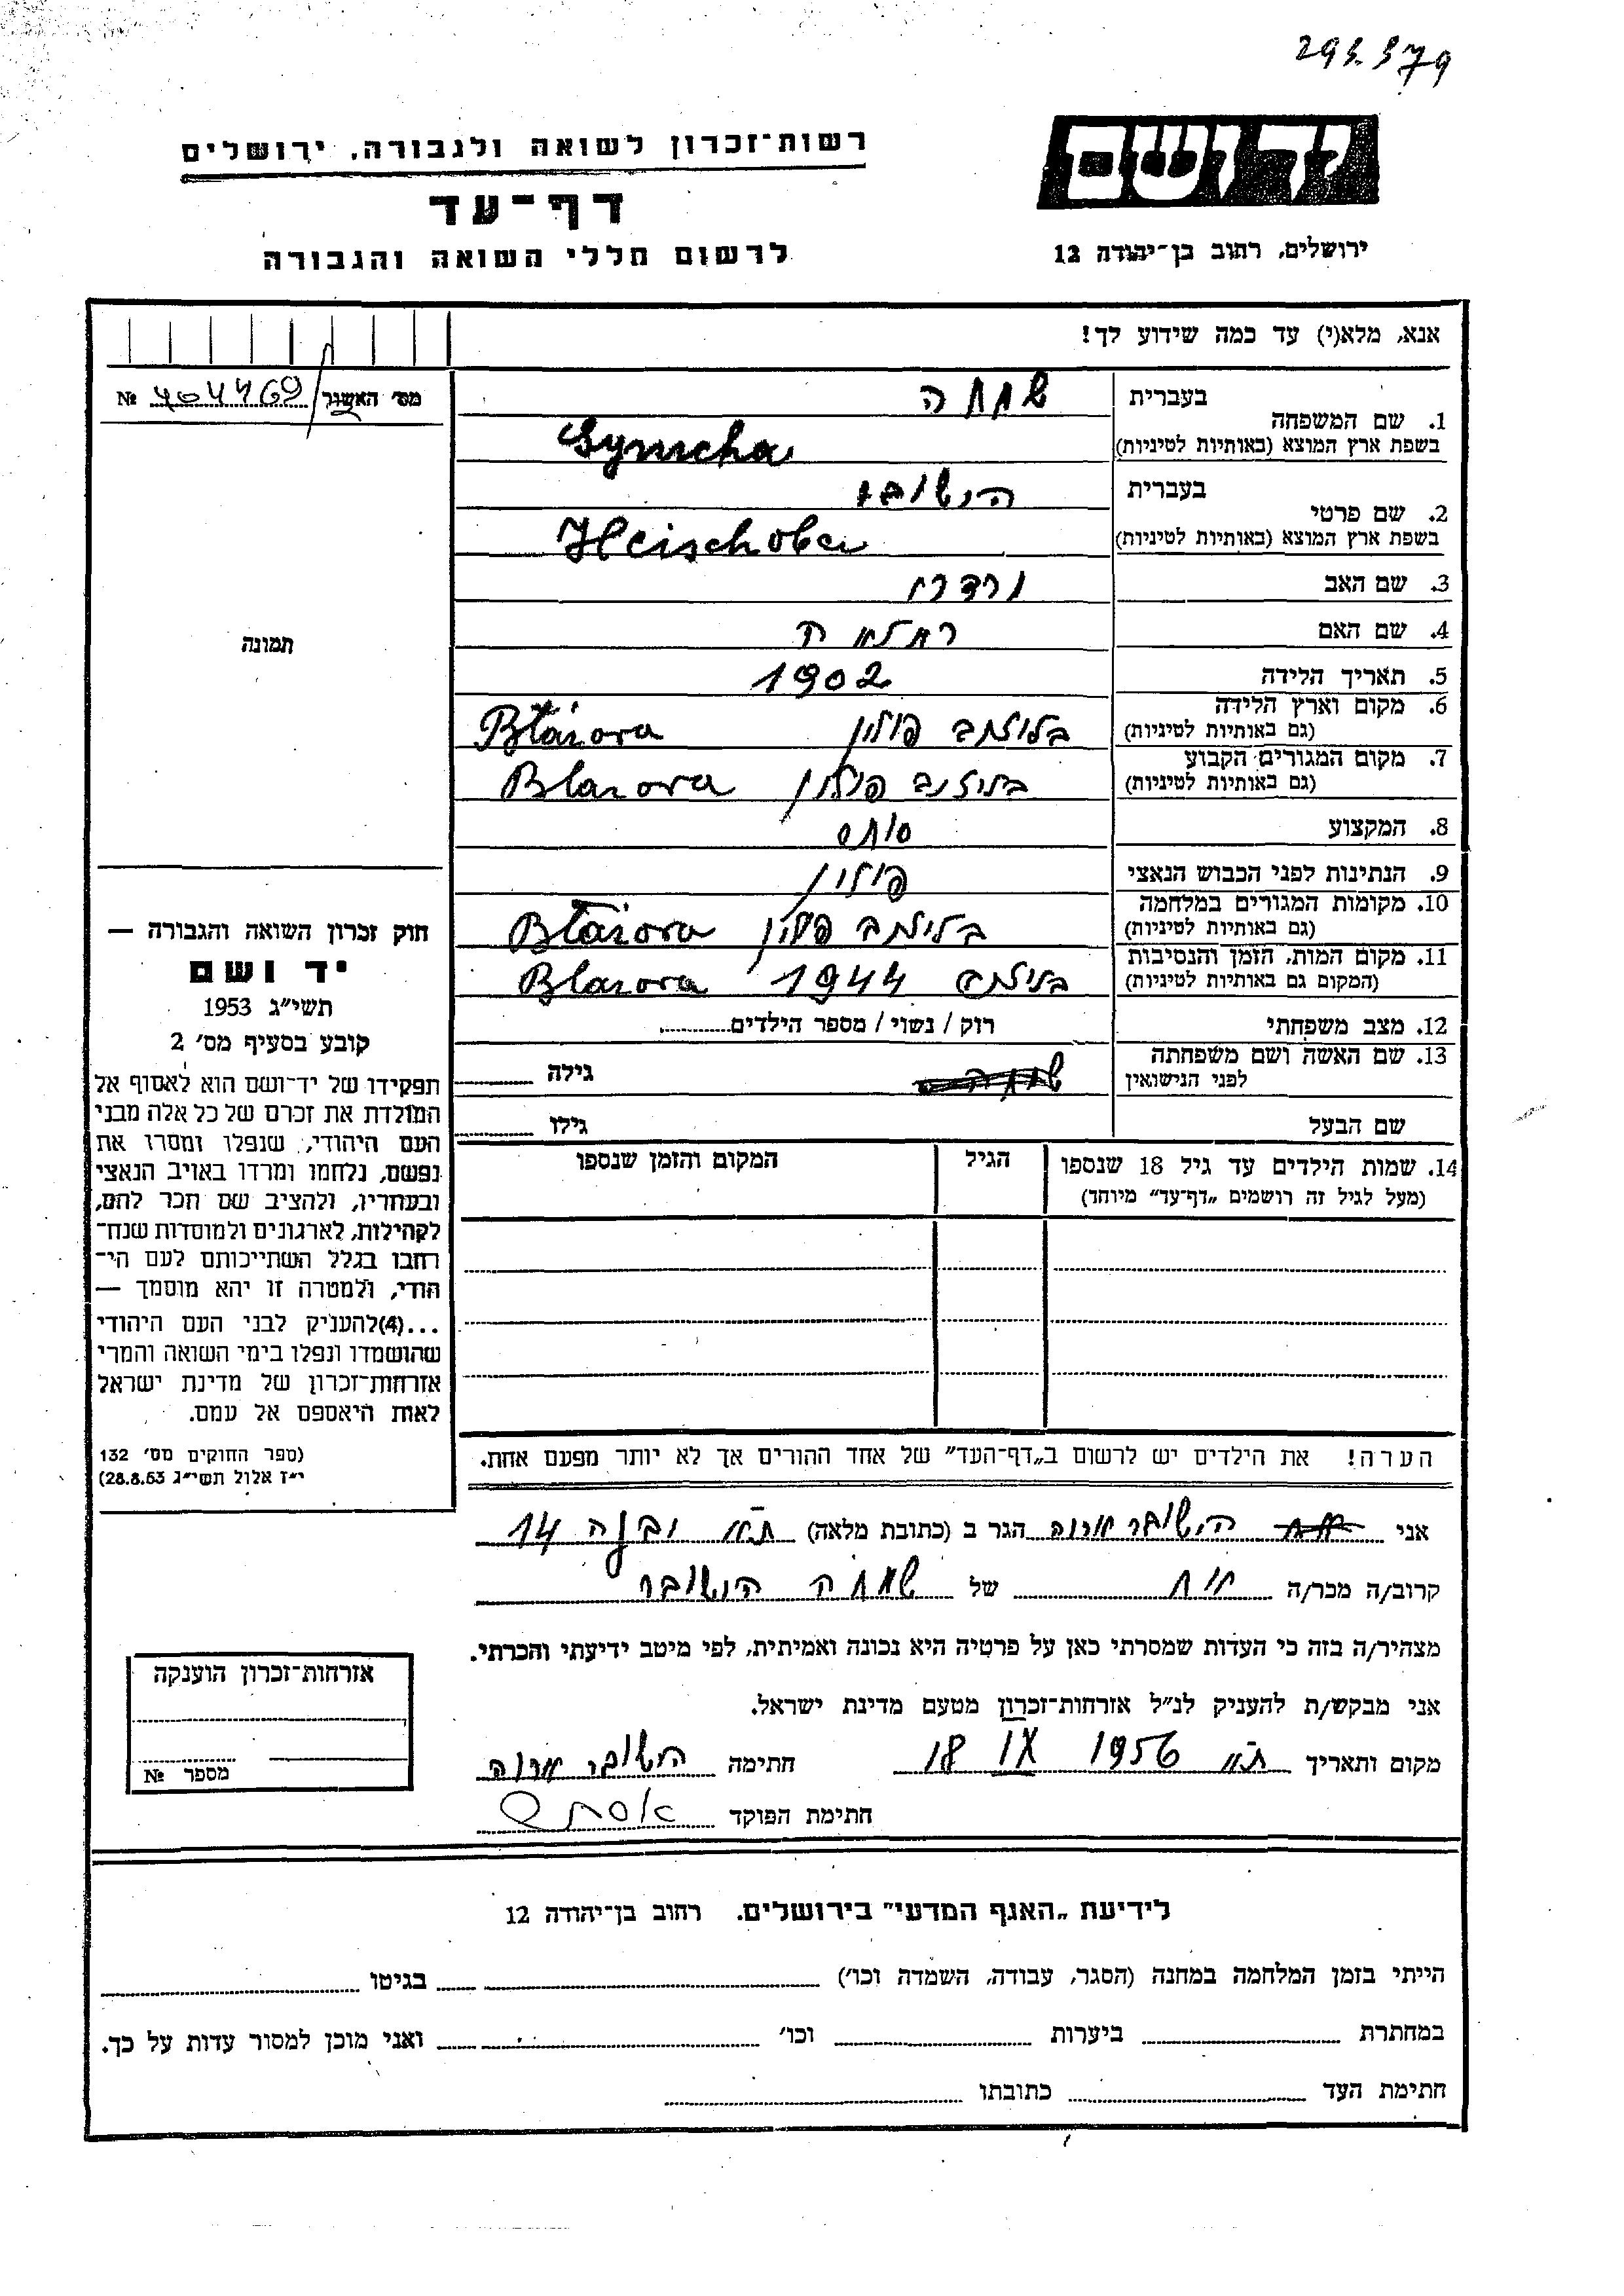 293.379
יד ושם
רשות־זכרון לשואה ולגבורה, ירושלים
דף־עד
לרשום חללי השואה והגבורה
ירושלים, רחוב בן־יהודה 12
אנא, מלא(י) עד כמה שידוע לך!
מס׳ האשור № 404469
תמונה
1. שם המשפחה בעברית שמחה
בשפת ארץ המוצא (באותיות לטיניות) Symcha
2. שם פרטי בעברית הישובר
בשפת ארץ המוצא (באותיות לטיניות) Heischober
3. שם האב
4. שם האם
5. תאריך הלידה 1902
6. מקום וארץ הלידה (גם באותיות לטיניות) פולין Błażova
7. מקום המגורים הקבוע (גם באותיות לטיניות) פולין Blazova
8. המקצוע סוחר
9. הנתינות לפני הכבוש הנאצי פולין
10. מקומות המגורים במלחמה (גם באותיות לטיניות) פולין Błażova
11. מקום המות, הזמן והנסיבות (המקום גם באותיות לטיניות) 1944 Blazova
12. מצב משפחתי רוק / נשוי / מספר הילדים
13. שם האשה ושם משפחתה לפני הנישואין גילה
שם הבעל גילו
14. שמות הילדים עד גיל 18 שנספו (מעל לגיל זה רושמים „דף־עד״ מיוחד) הגיל המקום והזמן שנספו
הערה! את הילדים יש לרשום ב„דף־העד״ של אחד ההורים אך לא יותר מפעם אחת.
חוק זכרון השואה והגבורה —
יד ושם
תשי״ג 1953
קובע בסעיף מס׳ 2
תפקידו של יד־ושם הוא לאסוף אל
המולדת את זכרם של כל אלה מבני
העם היהודי, שנפלו ומסרו את
נפשם, נלחמו ומרדו באויב הנאצי
ובעוזריו, ולהציב שם וזכר להם,
לקהילות, לארגונים ולמוסדות שנח־
רבו בגלל השתייכותם לעם הי־
הודי, ולמטרה זו יהא מוסמך —
...(4)להעניק לבני העם היהודי
שהושמדו ונפלו בימי השואה והמרי
אזרחות־זכרון של מדינת ישראל
לאות היאספם אל עמם.
(ספר החוקים מס׳ 132
י״ז אלול תשי״ג 28.8.53)
אני הישובר הגר ב (כתובת מלאה) ת״א יבנה 14
קרוב/ה מכר/ה של שמחה הישובר
מצהיר/ה בזה כי העדות שמסרתי כאן על פרטיה היא נכונה ואמיתית, לפי מיטב ידיעתי והכרתי.
אני מבקש/ת להעניק לנ״ל אזרחות־זכרון מטעם מדינת ישראל.
מקום ותאריך ת״א 18 IX 1956 חתימה הישובר
חתימת הפוקד
אזרחות־זכרון הוענקה
מספר №
לידיעת „האגף המדעי״ בירושלים. רחוב בן־יהודה 12
הייתי בזמן המלחמה במחנה (הסגר, עבודה, השמדה וכו׳) בגיטו
במחתרת ביערות וכו׳ ואני מוכן למסור עדות על כך.
חתימת העד כתובתו